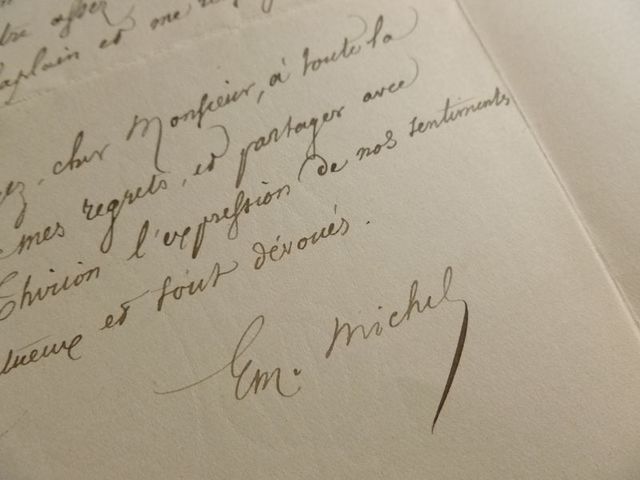 tre assez
Chaplain et me
ez, cher Monsieur, à toute la
mes regrets, et partager avec
Thirion l'expression de nos sentiments
tueux et tout dévoués.
Em. Michel